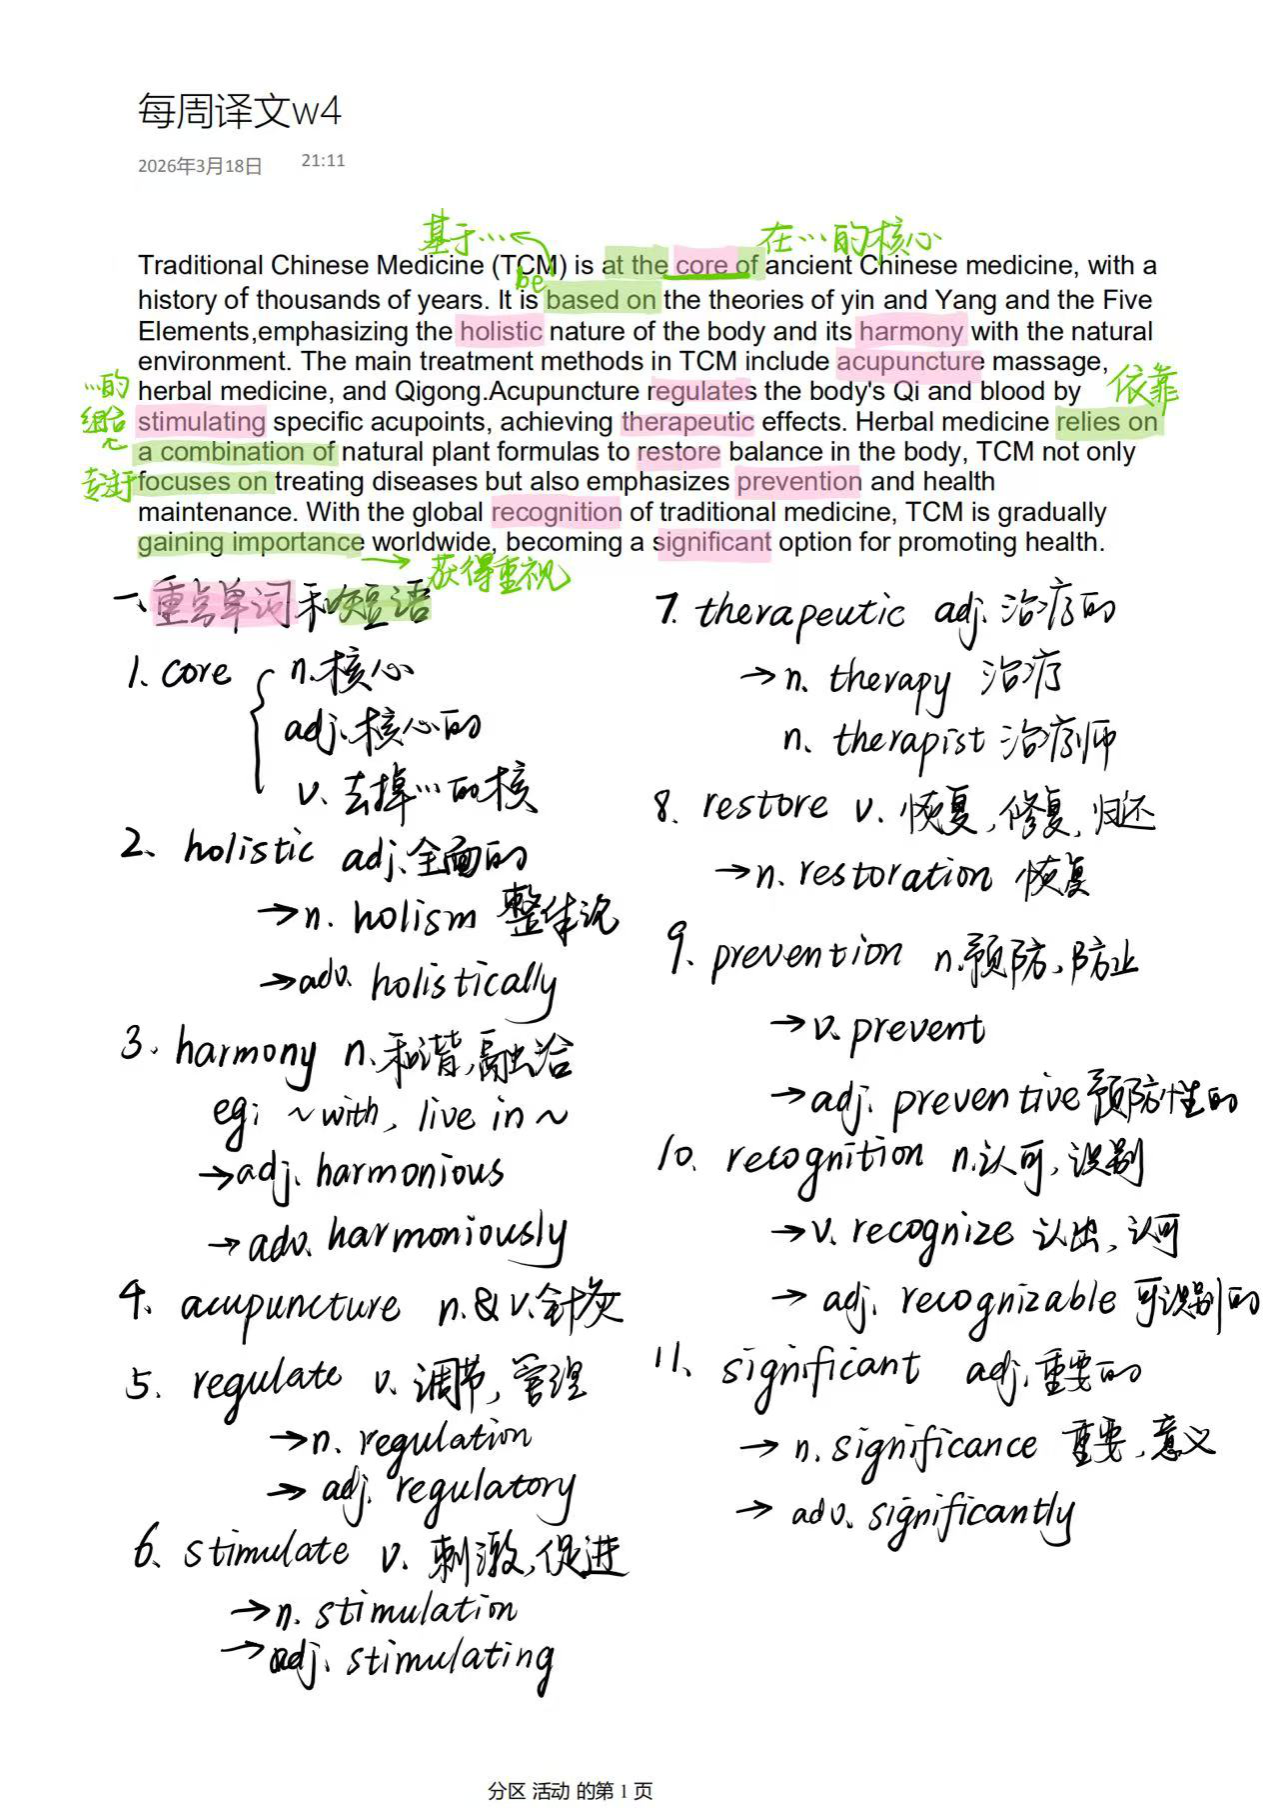 每周译文w4
2026年3月18日 21:11
基于… 在…的核心
Traditional Chinese Medicine (TCM) is at the core of ancient Chinese medicine, with a
be
history of thousands of years. It is based on the theories of yin and Yang and the Five
Elements,emphasizing the holistic nature of the body and its harmony with the natural
environment. The main treatment methods in TCM include acupuncture massage,
…的组合
herbal medicine, and Qigong.Acupuncture regulates the body's Qi and blood by
依靠
stimulating specific acupoints, achieving therapeutic effects. Herbal medicine relies on
a combination of natural plant formulas to restore balance in the body, TCM not only
专注于
focuses on treating diseases but also emphasizes prevention and health
maintenance. With the global recognition of traditional medicine, TCM is gradually
gaining importance worldwide, becoming a significant option for promoting health.
→ 获得重视
一、重点单词和短语
1. core n.核心
adj.核心的
v. 去掉…的核
2、holistic adj.全面的
→n. holism 整体论
→adv. holistically
3. harmony n.和谐,融洽
eg: ~with, live in ~
→adj. harmonious
→adv. harmoniously
4. acupuncture n.&v.针灸
5. regulate v.调节,管理
→n. regulation
→ adj. regulatory
6、stimulate v. 刺激,促进
→n. stimulation
→adj. stimulating
7. therapeutic adj.治疗的
→n. therapy 治疗
n. therapist 治疗师
8. restore v. 恢复,修复,归还
→n. restoration 恢复
9. prevention n.预防、防止
→v. prevent
→adj. preventive 预防性的
10. recognition n.认可,识别
→v. recognize 认出,认可
→ adj. recognizable 可识别的
11. significant adj.重要的
→ n. significance 重要,意义
→ adv. significantly
分区 活动 的第 1 页